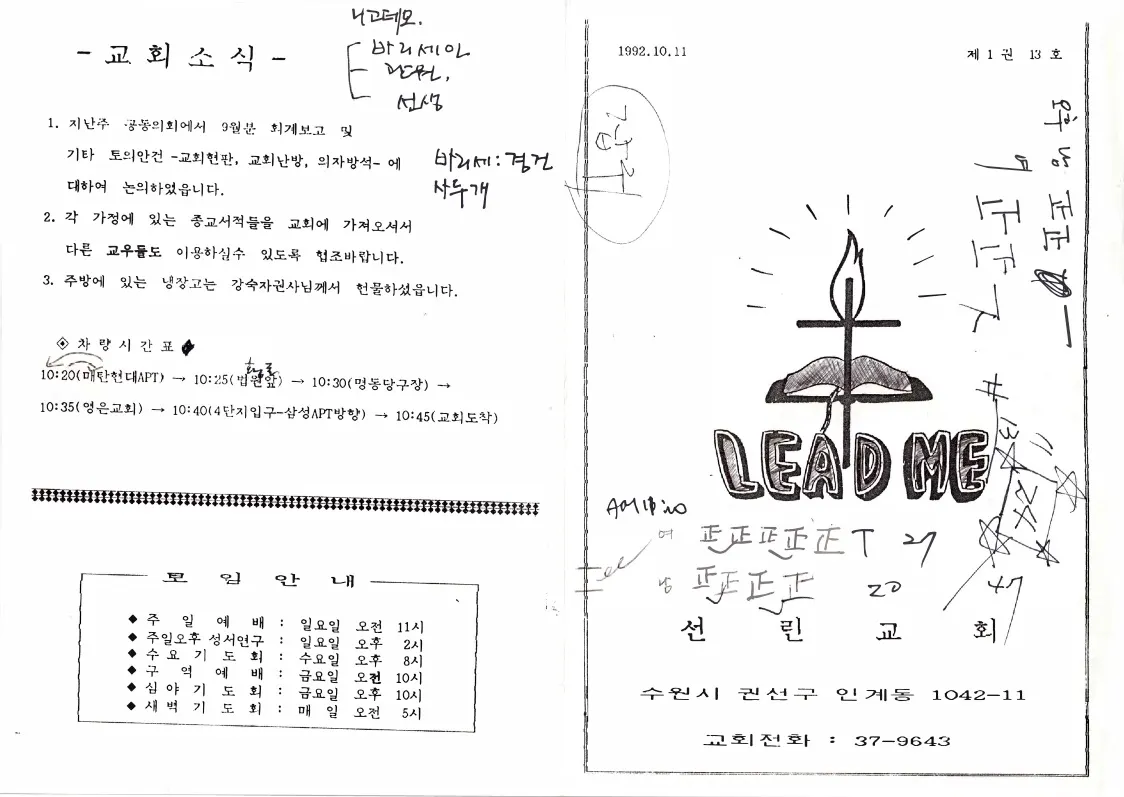 니고데모.
바리세인
관원,
선생
- 교 회 소 식 -
1. 지난주 공동의회에서 9월분 회계보고 및
기타 토의안건 -교회현판, 교회난방, 의자방석- 에
대하여 논의하였읍니다.
바리세 : 경건
사두개
2. 각 가정에 있는 종교서적들을 교회에 가져오셔서
다른 교우들도 이용하실수 있도록 협조바랍니다.
3. 주방에 있는 냉장고는 강숙자권사님께서 헌물하셨읍니다.
◈ 차 량 시 간 표
10:20(매탄현대APT) → 10:25(법원앞) → 10:30(명동당구장) →
10:35(영은교회) → 10:40(4단지입구-삼성APT방향) → 10:45(교회도착)
모 임 안 내
◆ 주 일 예 배 : 일요일 오전 11시
◆ 주일오후 성서연구 : 일요일 오후 2시
◆ 수 요 기 도 회 : 수요일 오후 8시
◆ 구 역 예 배 : 금요일 오전 10시
◆ 심 야 기 도 회 : 금요일 오후 10시
◆ 새 벽 기 도 회 : 매 일 오전 5시
1992.10.11
제 1 권 13 호
학생 正正
LEAD ME
#13
11
24
여 正正正正正T 27
남 正正正正 20
47
선 린 교 회
수원시 권선구 인계동 1042-11
교회전화 : 37-9643